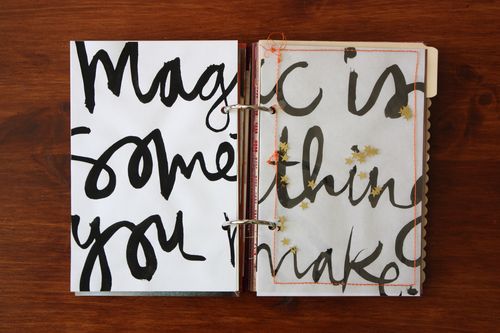 magic is
something
you make.